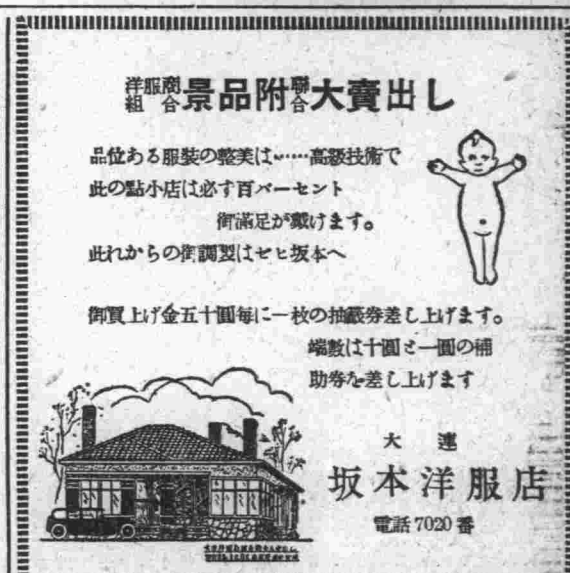 洋服商組合景品附聯合大賣出し
品位ある服裝の整美は……高級技術で
此の點小店は必ず百パーセント
御滿足が戴けます。
此れからの御調製はゼヒ坂本へ
御買上げ金五十圓每に一枚の抽籤券差し上げます。
端數は十圓と一圓の補
助券を差し上げます
大連
坂本洋服店
電話7020番